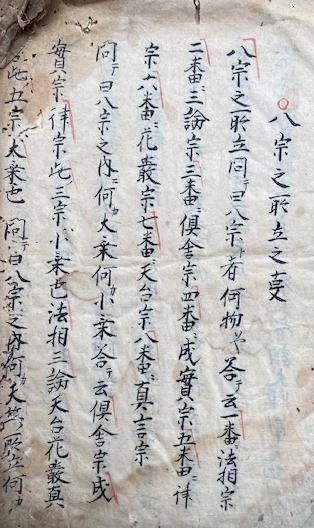 〇八宗之所立之叓
八宗之所立問テ曰八宗ト者何物ヤ答テ云一番法相宗
二番ニ三論宗三番ニ倶舎宗四番ニ成實宗五番ニ律
宗六番ニ花嚴宗七番ニ天台宗八番ニ真言宗
問テ曰八宗之内ニ何カ大乗何カ小乗答テ云倶舎宗成
實宗律宗此三宗ハ小乗也法相三論天台花嚴真
言此五宗ハ大乗也 問テ曰八宗之内何カ天竺所立何カ